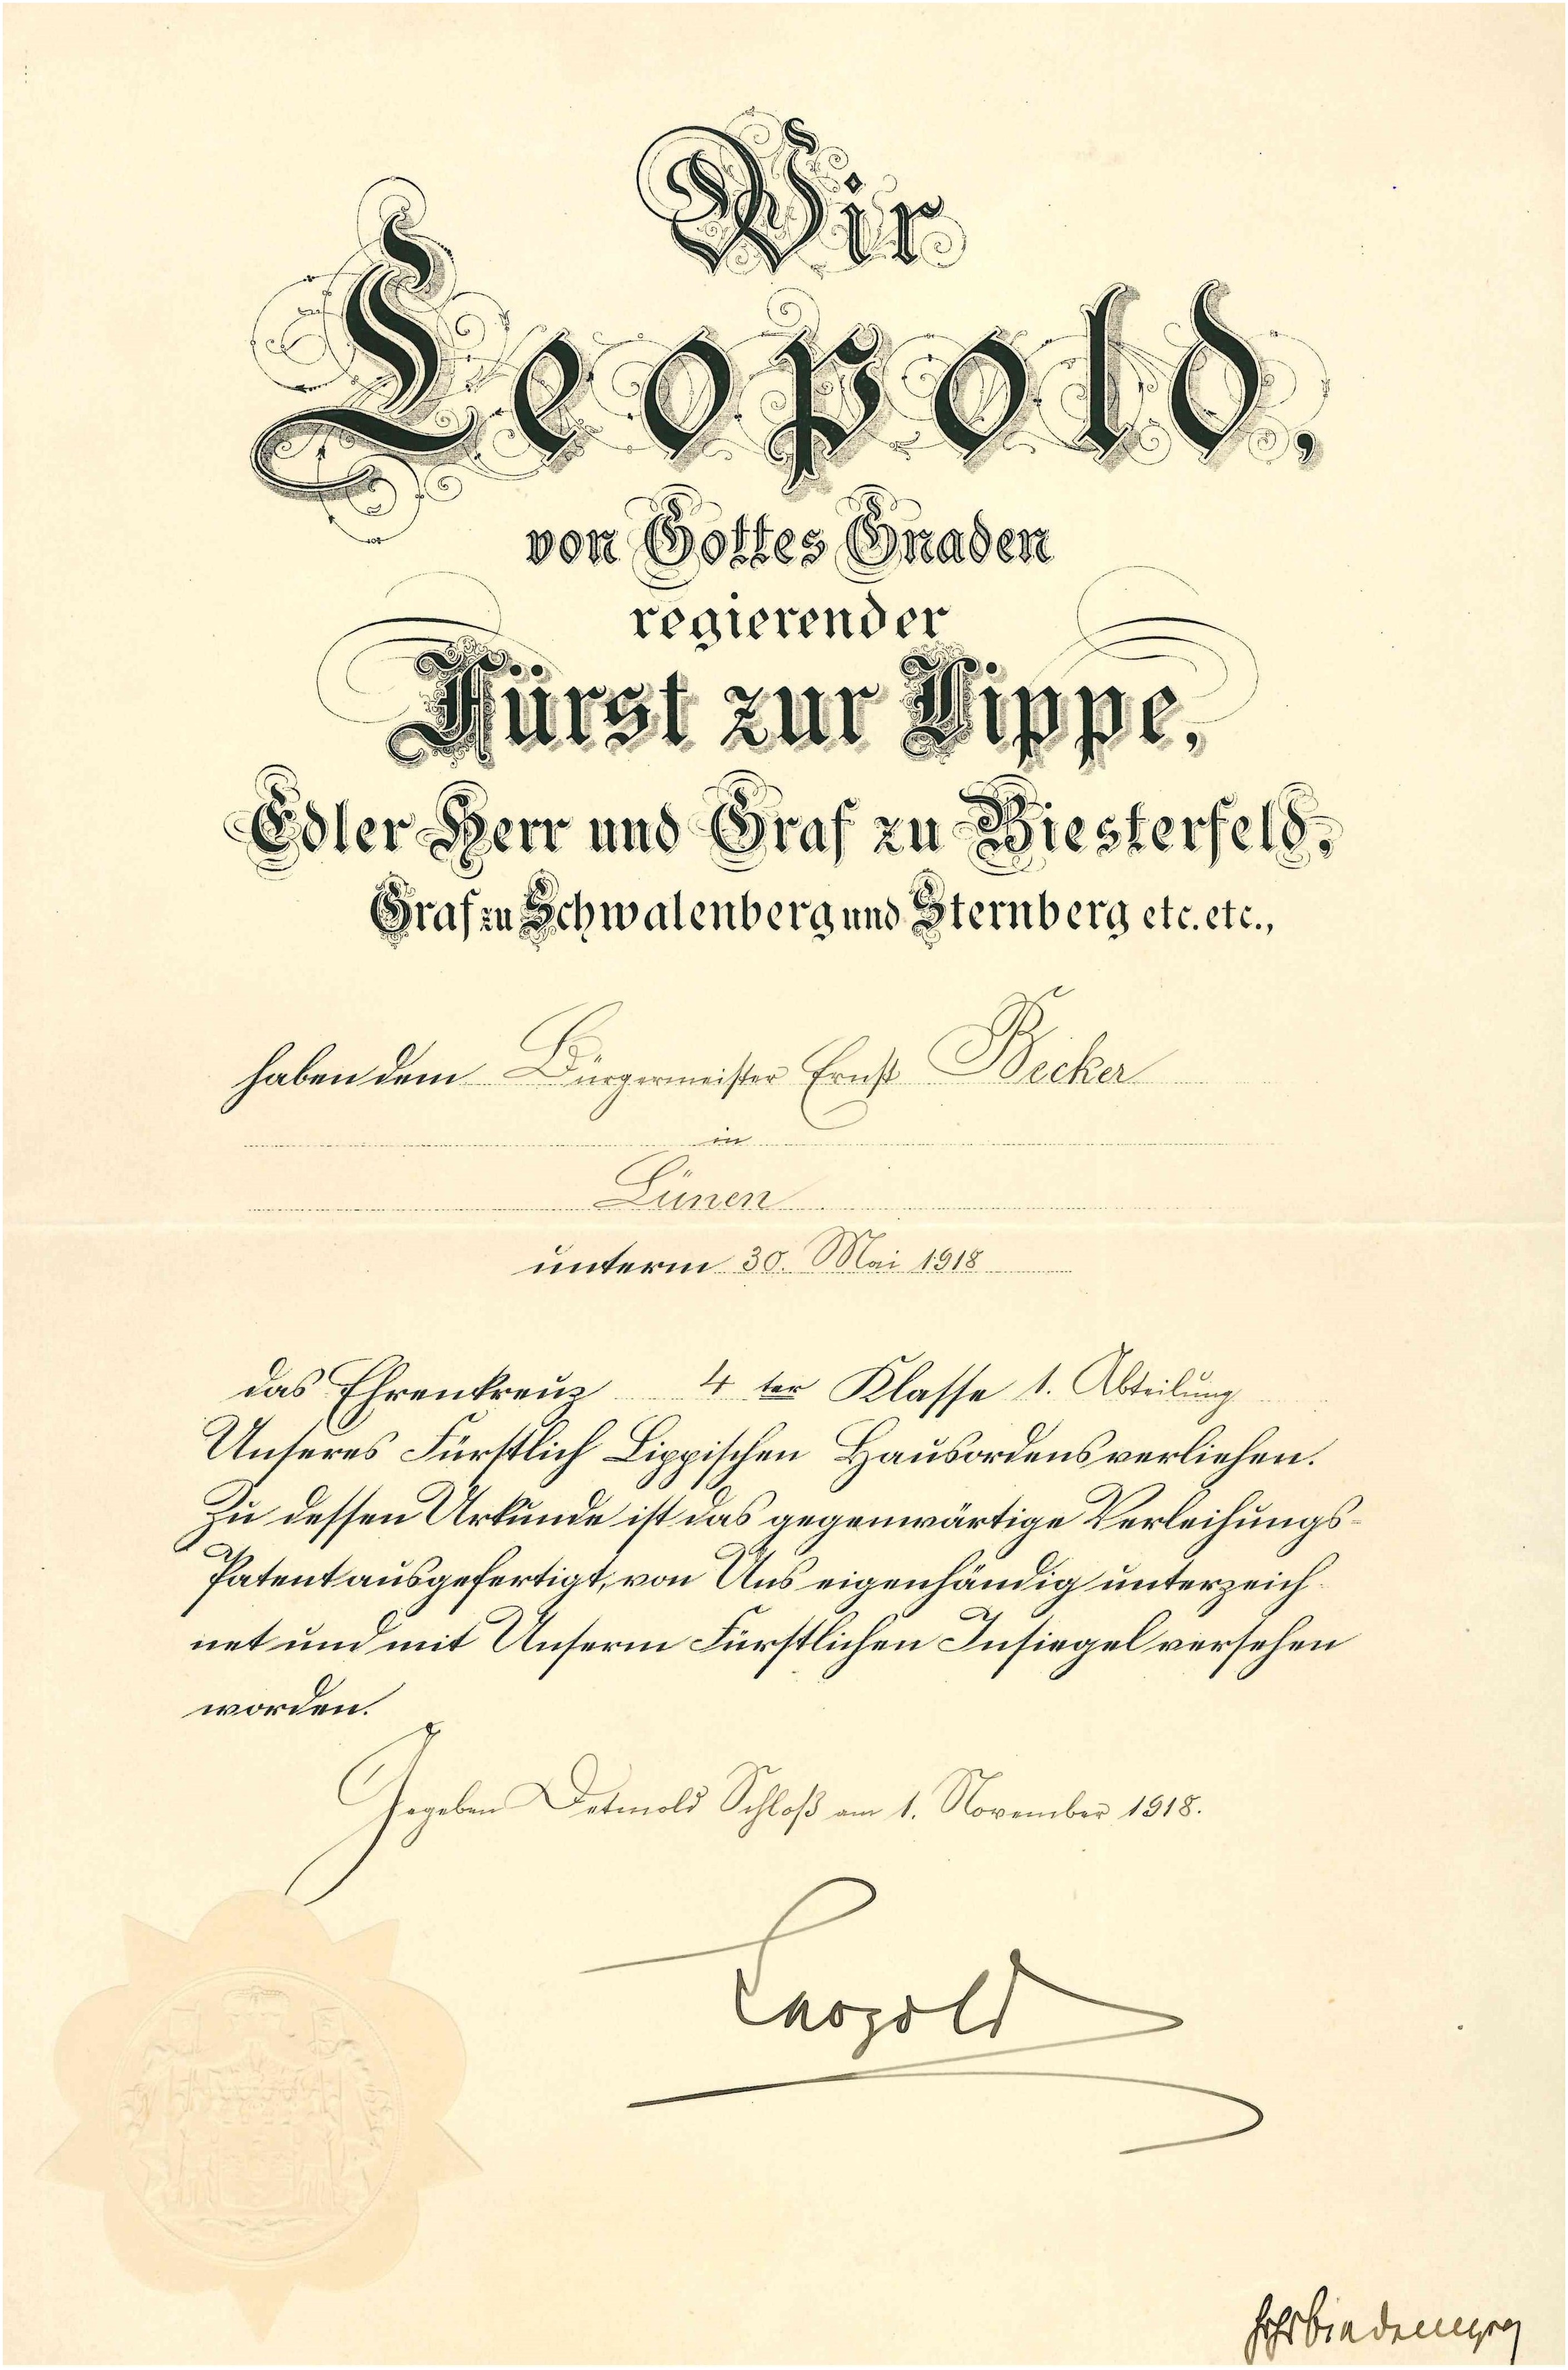 Wir
Leopold,
von Gottes Gnaden
regierender
Fürst zur Lippe,
Edler Herr und Graf zu Biesterfeld,
Graf zu Schwalenberg und Sternberg etc. etc.,
haben dem Bürgermeister Ernst Becker
in
Lünen
unterm 30. Mai 1918
das Ehrenkreuz 4 ter Klasse 1. Abteilung
Unseres Fürstlich Lippischen Hausordens verliehen.
Zu dessen Urkunde ist das gegenwärtige Verleihungs-
Patent ausgefertigt, von Uns eigenhändig unterzeich-
net und mit Unserm Fürstlichen Insiegel versehen
worden.
Gegeben Detmold Schloß am 1. November 1918.
Leopold